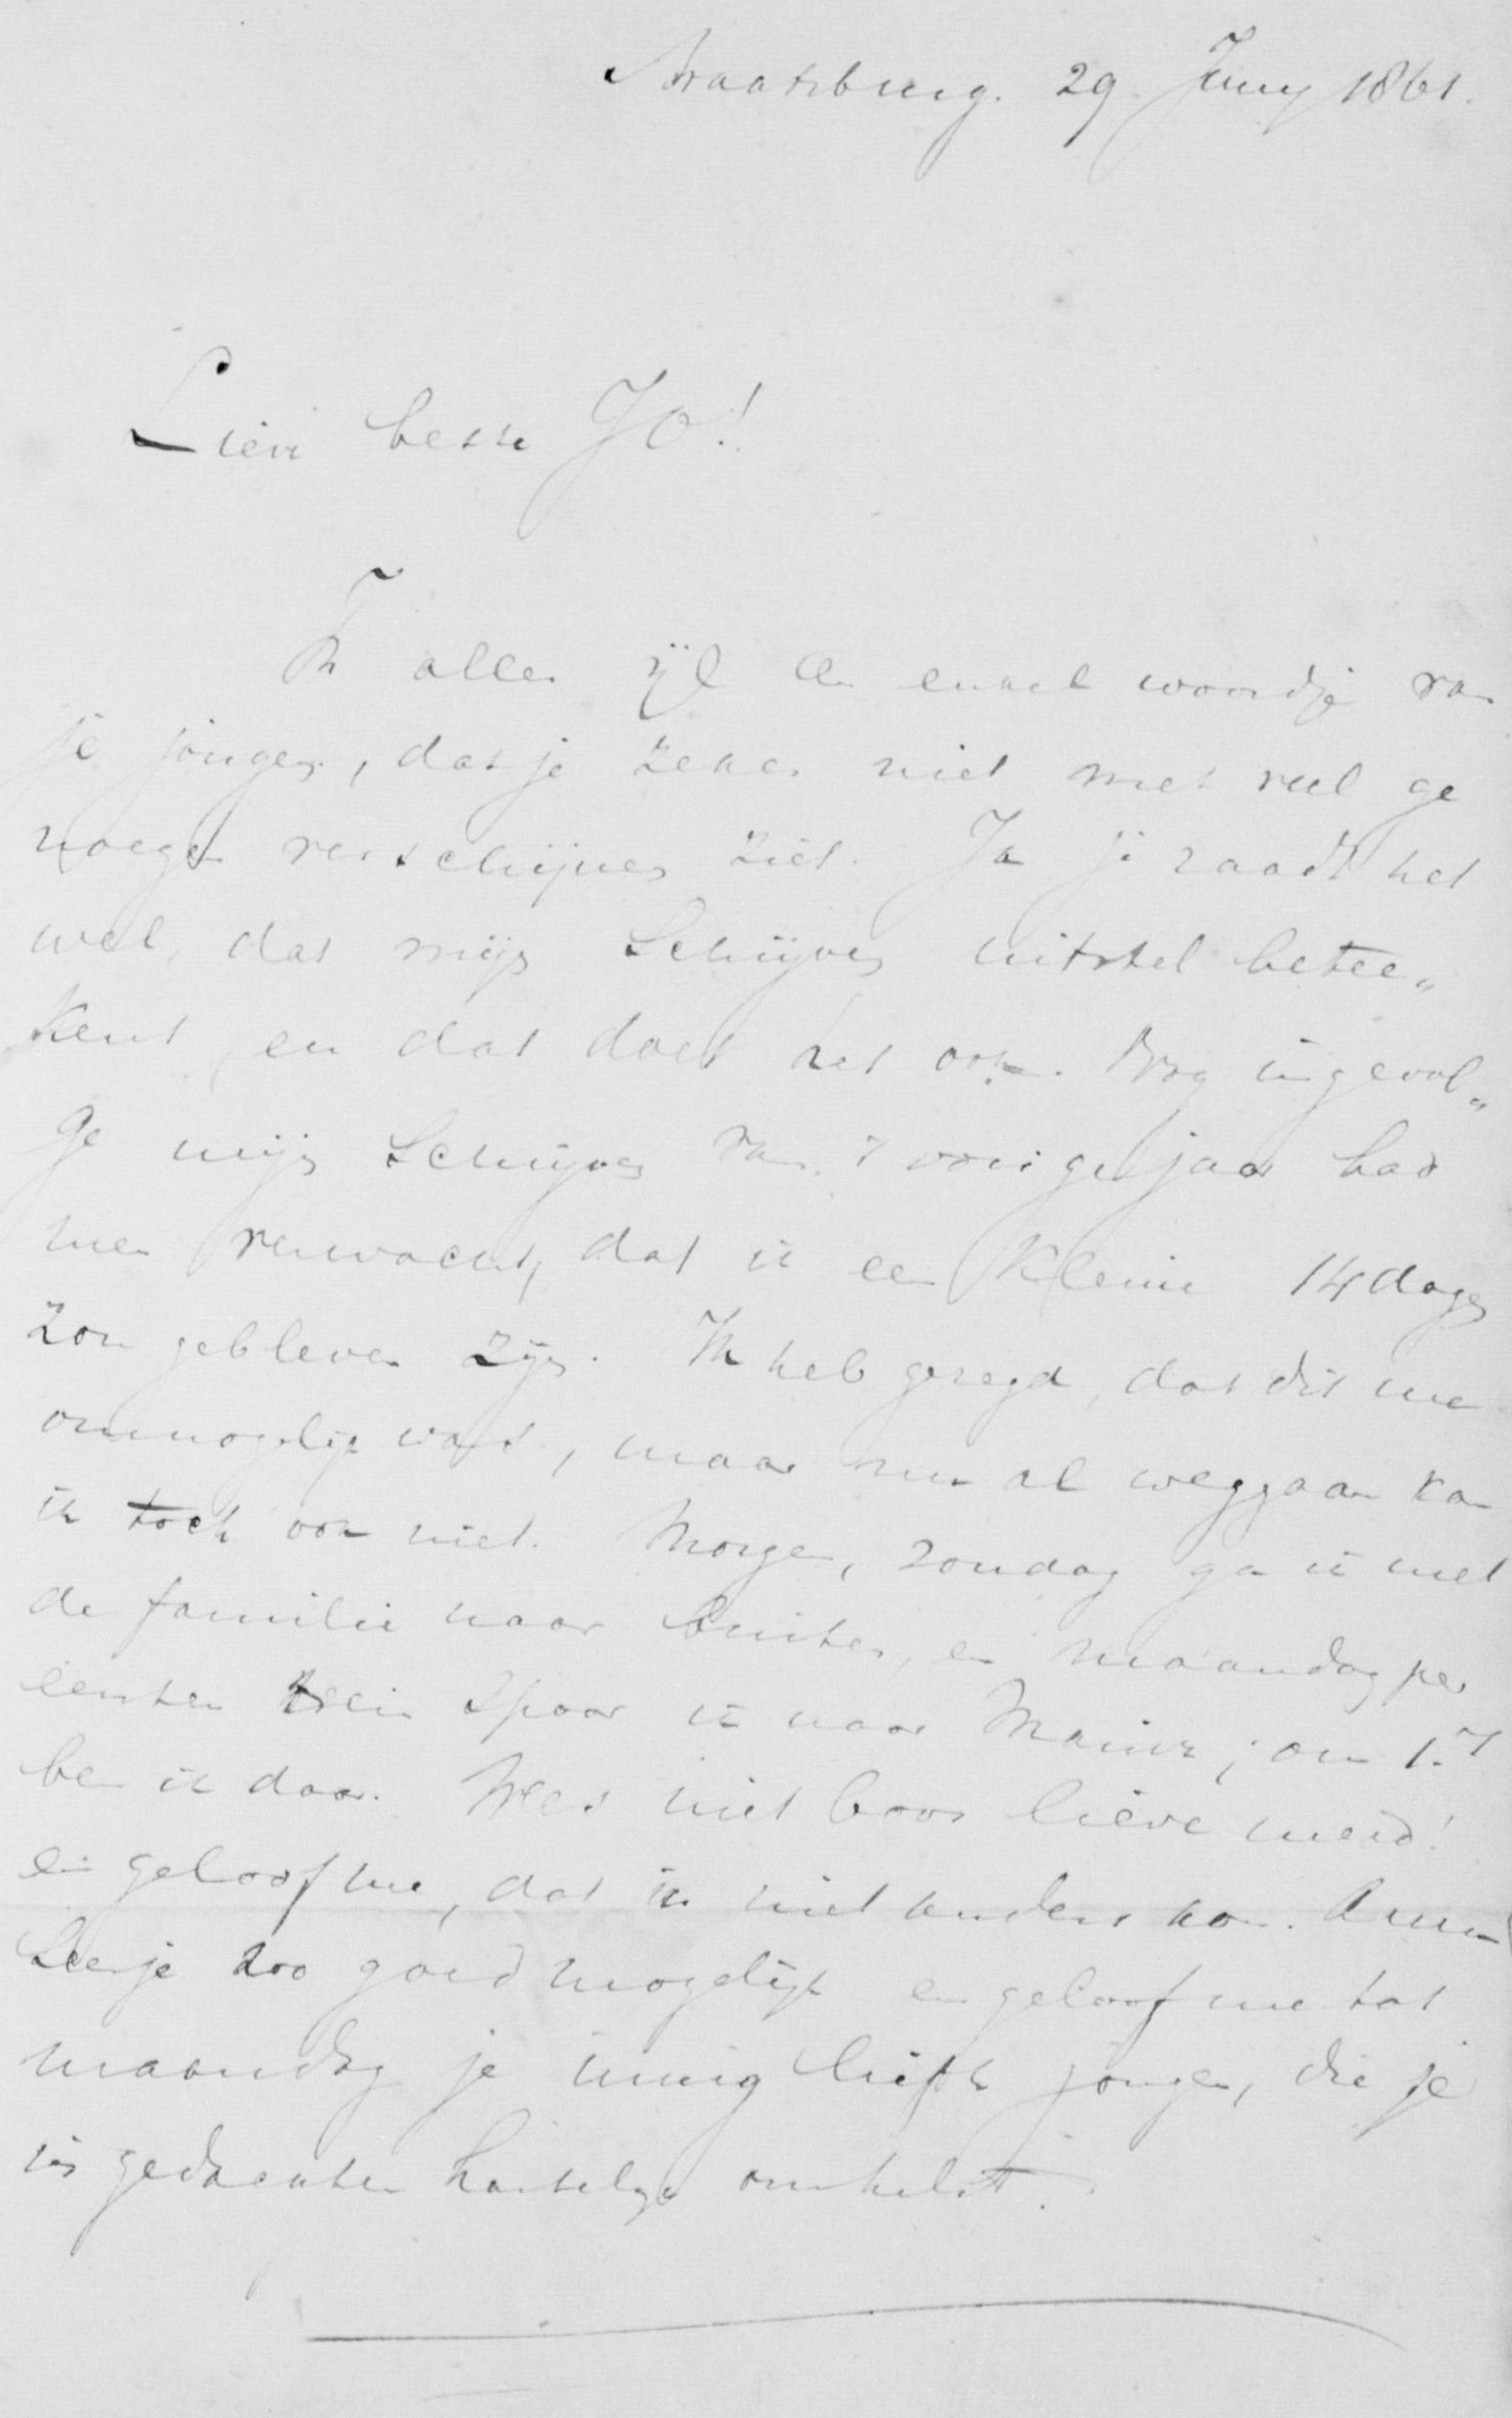 Straatsburg. 29 Juny 1861.
Lieve beste Jo!
In aller ijl een enkel woordje van
je jongen, dat je zeker niet met veel ge
noegen verschijnen ziet. Ja je raadt het
wel, dat mijn schrijven uitstel betee„
kent, en dat doet het ook. Nog ingevol„
ge mijn schrijven van 't vorige jaar had
men verwacht, dat ik een kleine 14 dagen
zou gebleven zijn. Ik heb gezegd, dat dit me
onmogelijk was, maar nu al weggaan kan
ik toch ook niet. Morgen, zondag ga ik met
de familie naar buiten, en maandag per
eersten trein spoor ik naar Mainz; om 1.7
ben ik daar. Wees niet boos lieve meid!
en geloof me, dat ik niet anders kon. Amu
seer je zoo goed mogelijk en geloof me tot
maandag je innig liefh jongen, die je
in gedachten hartelijk omhelst.